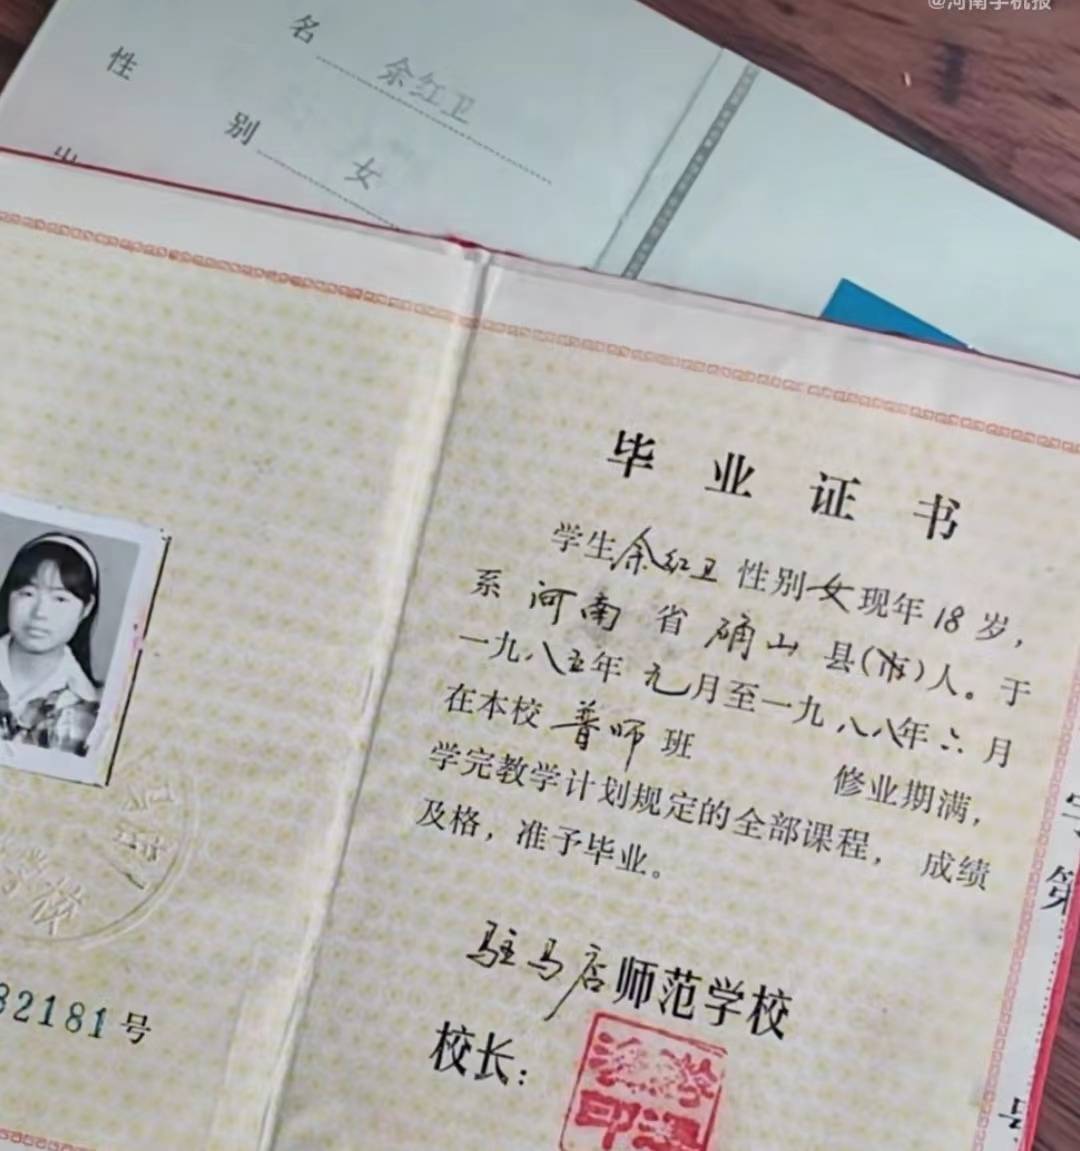 @河南手机报
名 余红卫
性 别 女
毕业证书
学生余红卫 性别女现年18岁，
系 河南 省 确山 县(市)人。于
一九八五年 九月至一九八八年六月
在本校 普师 班 修业期满，
学完教学计划规定的全部课程， 成绩
及格，准予毕业。
驻马店师范学校
校长：
32181号
第
号